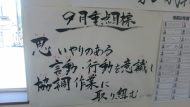 9月重点目標
思いやりのある
言動・行動を意識し
協調作業に
取り組む